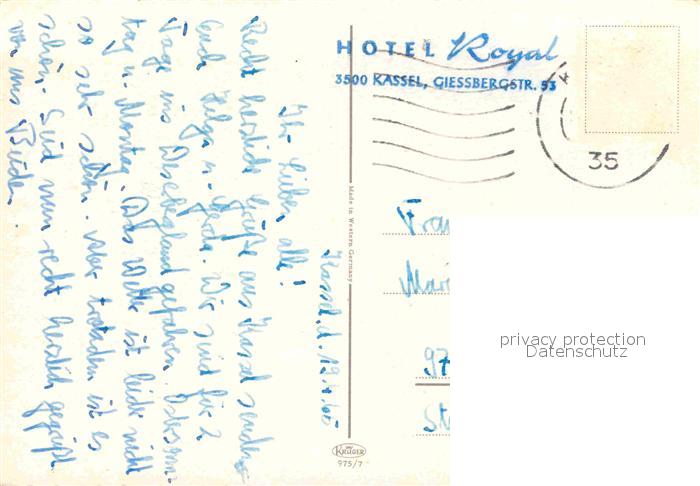 HOTEL Royal
3500 KASSEL, GIESSBERGSTR. 53
35
Kassel, d. 19.4.
Ihr Lieben alle!
Recht herzliche Grüße aus Kassel senden
Euch Helga u. Gerda. Wir sind für 2
Tage ins Weserbergland gefahren. Ostersonn-
tag u. Montag. Das Wetter ist leider nicht
so sehr schön. Aber trotzdem ist es
schön. Seid nun recht herzlich gegrüßt
von uns Beiden.
Made in Western Germany
KRÜGER
975/7
97
privacy protection
Datenschutz